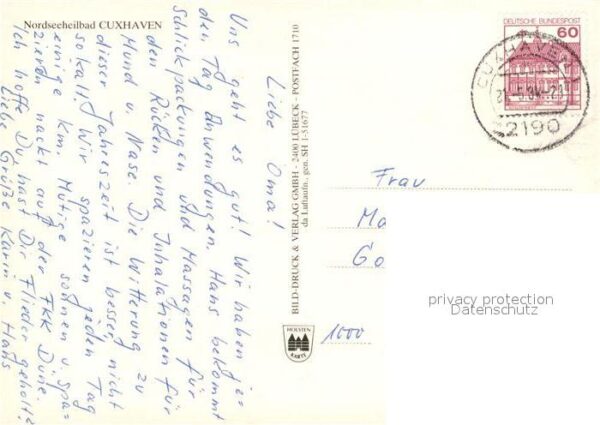 Nordseeheilbad CUXHAVEN
Liebe Oma!
Uns geht es gut! Wir haben je-
den Tag Anwendungen. Hans bekommt
Schlickpackungen und Massagen für
den Rücken und Inhalationen für
Mund u. Nase. Die Witterung zu
dieser Jahreszeit ist besser, nicht
so kalt. Wir spazieren jeden Tag
einige Km. Mutige sonnen u. spa-
zieren nackt auf der FKK Düne.
Ich hoffe Du hast Dir Flieder geholt?
Liebe Grüße Karin u. Hans
BILD-DRUCK & VERLAG GMBH - 2400 LÜBECK - POSTFACH 1710
da Luftaufn., gen. SH 1-51677
HOLSTEN
KARTE
DEUTSCHE BUNDESPOST
60
CUXHAVEN 1
2190
Frau
Ma
Go
1000
privacy protection
Datenschutz